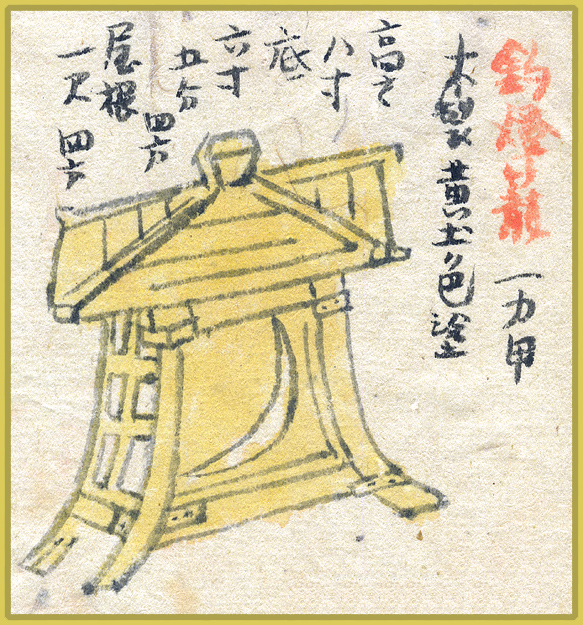 釣燈籠
一力甲
木製黄土色塗
高さ
八寸
底
六寸
五分
四方
屋根
一尺
四方